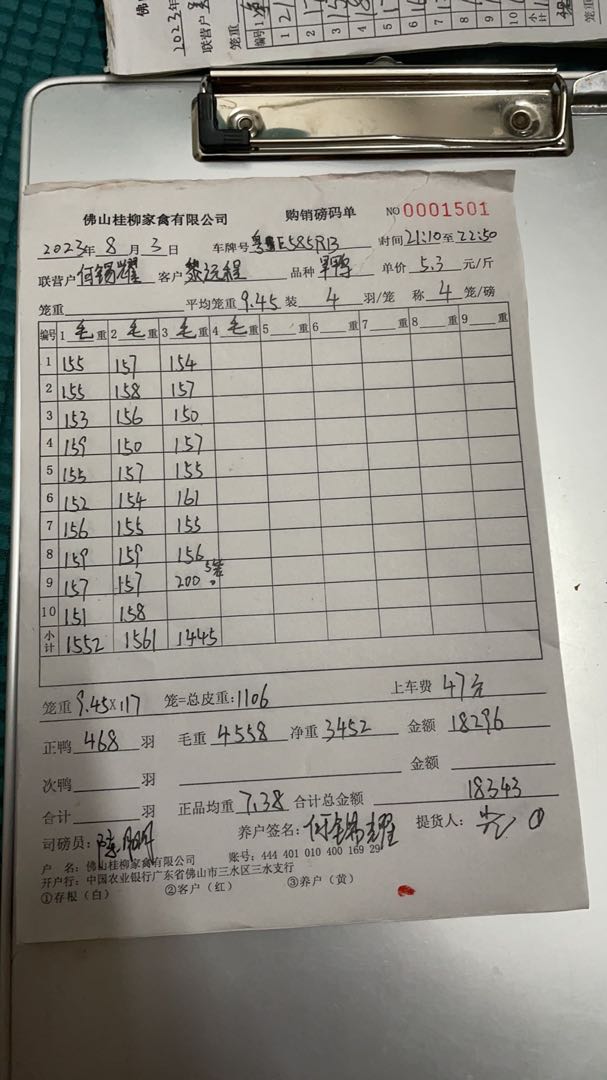 佛山桂柳家禽有限公司 购销磅码单 NO 0001501
2023年 8 月 3 日 车牌号 粤E585RB 时间21:10至22:50
联营户何锡耀 客户 黎沅程 品种 旱鸭 单价 5.3 元/斤
笼重 平均笼重 9.45 装 4 羽/笼 称 4 笼/磅
编号 1 毛 重 2 毛 重 3 毛 重 4 毛 重 5 重 6 重 7 重 8 重 9 重
1 155 157 154
2 155 158 157
3 153 156 150
4 159 150 157
5 155 157 155
6 152 154 161
7 156 155 155
8 159 159 156
9 157 157 200 5笼
10 151 158
小计 1552 1561 1445
笼重 9.45×117 笼=总皮重:1106 上车费 47元
正鸭 468 羽 毛重 4558 净重 3452 金额 18296
次鸭 羽 金额
合计 羽 正品均重 7.38 合计总金额 18343
司磅员: 养户签名: 何锡耀 提货人:
户 名: 佛山桂柳家禽有限公司 账号: 444 401 010 400 169 29
开户行: 中国农业银行广东省佛山市三水区三水支行
①存根(白) ②客户(红) ③养户(黄)